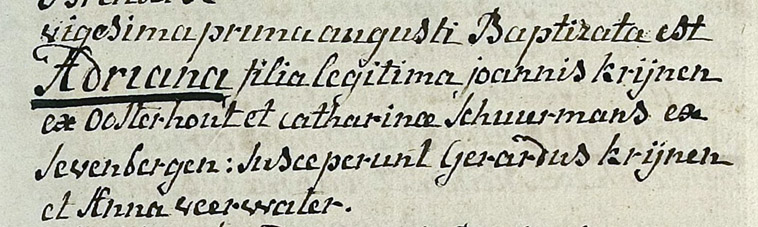 vigesima prima augusti Baptizata est
Adriana filia legitima joannis krijnen
ex Oosterhout et catharinæ Schuurmans ex
Sevenbergen: Susceperunt Gerardus krijnen
et Anna veerwater.